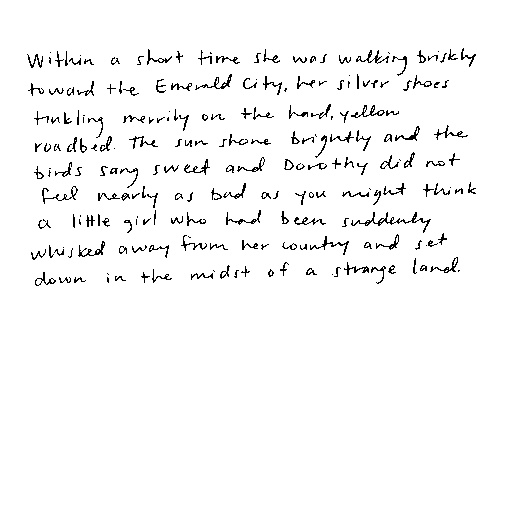 Within a short time she was walking briskly
toward the Emerald City, her silver shoes
tinkling merrily on the hard, yellow
roadbed. The sun shone brightly and the
birds sang sweet and Dorothy did not
feel nearly as bad as you might think
a little girl who had been suddenly
whisked away from her country and set
down in the midst of a strange land.